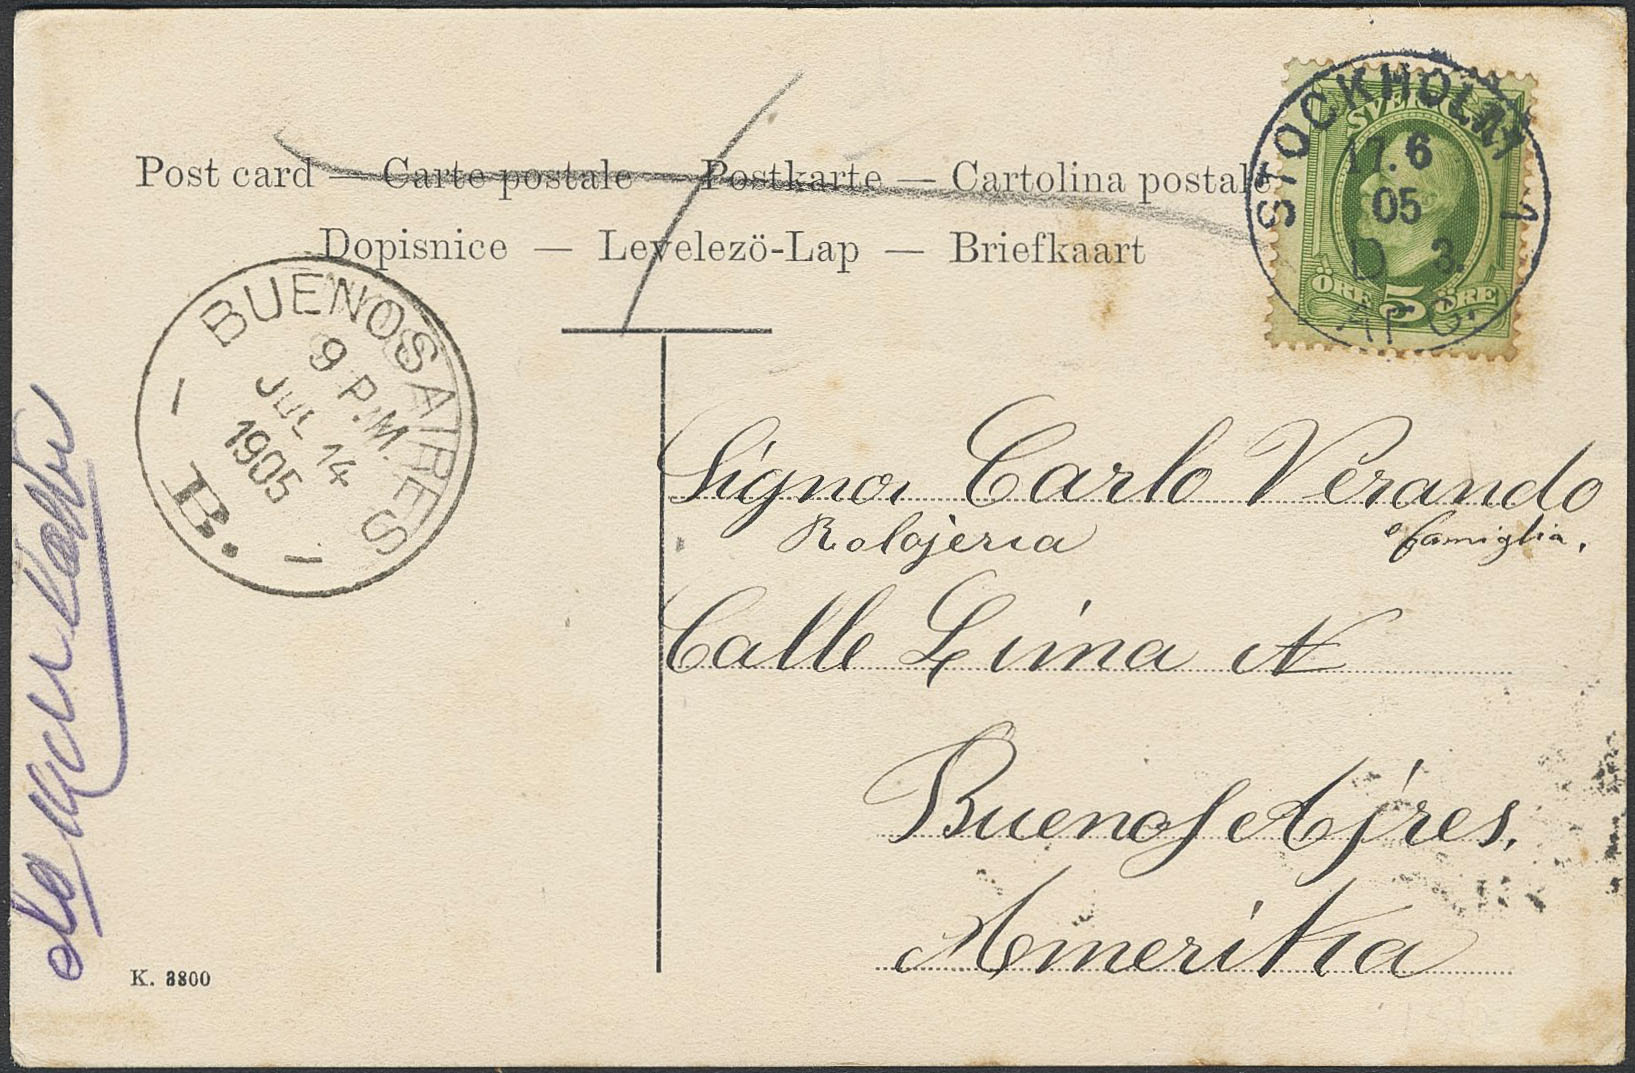 Post card — Carte postale — Postkarte — Cartolina postale
Dopisnice — Levelezö-Lap — Briefkaart
STOCKHOLM 1
17.6
05
D 3.
AFG.
SVERIGE
ÖRE 5 ÖRE
BUENOS AIRES
9 P.M.
JUL 14
1905
B.
Signor Carlo Verando
Rolojeria e famiglia,
Calle Lima N
Buenos Ajres,
Amerika
K. 3800